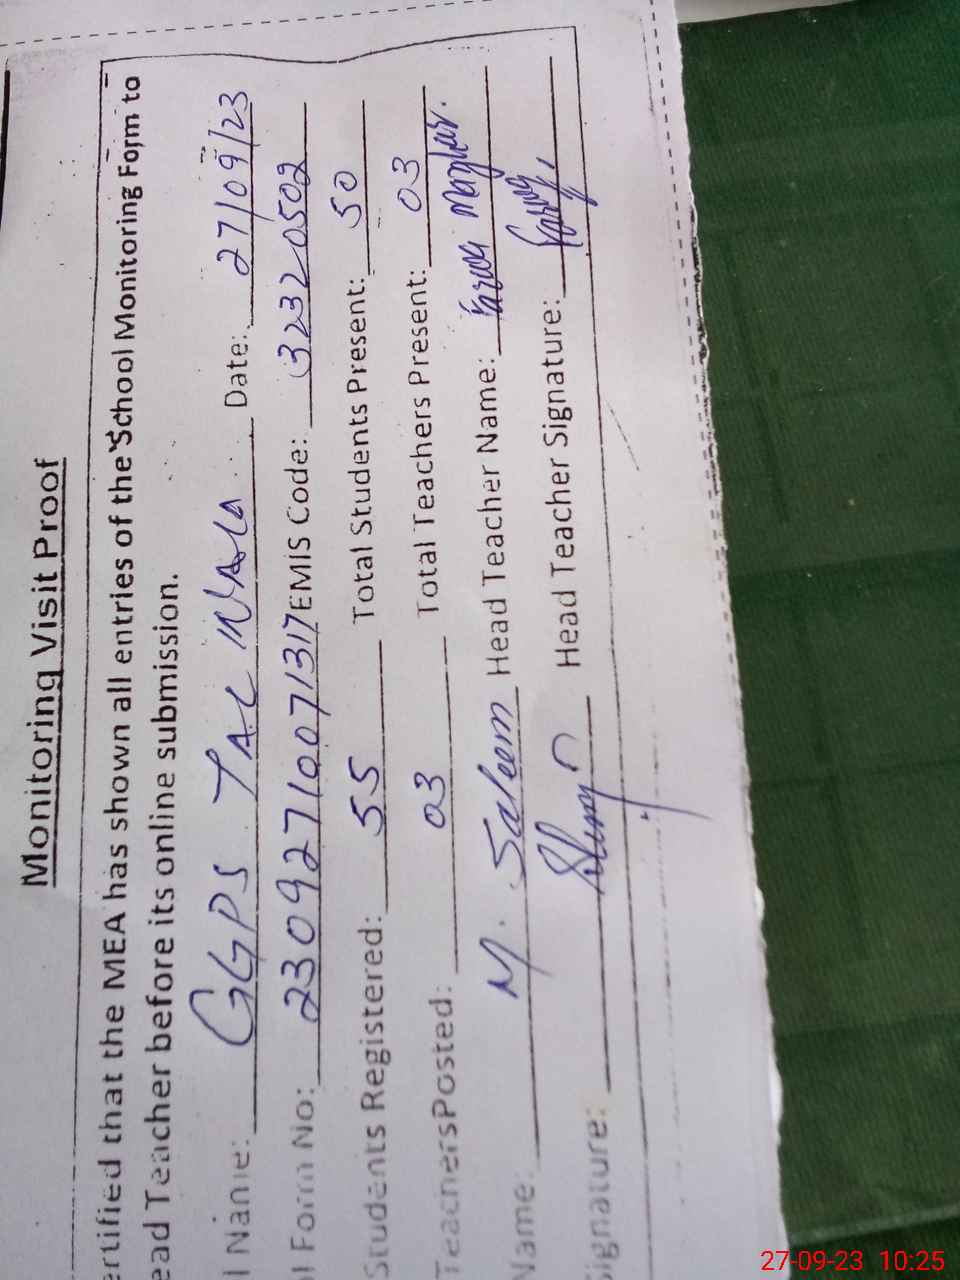 Monitoring Visit Proof
ertified that the MEA has shown all entries of the School Monitoring Form to
ead Teacher before its online submission.
l Name: GGPS TAL WALA Date: 27/09/23
ol Form No: 23092710071317 EMIS Code: 32320502
Students Registered: 55 Total Students Present: 50
Teachers Posted: 03 Total Teachers Present: 03
Name: M. Saleem Head Teacher Name: Farwa Mazhar.
Signature: Head Teacher Signature: Farwa
27-09-23 10:25